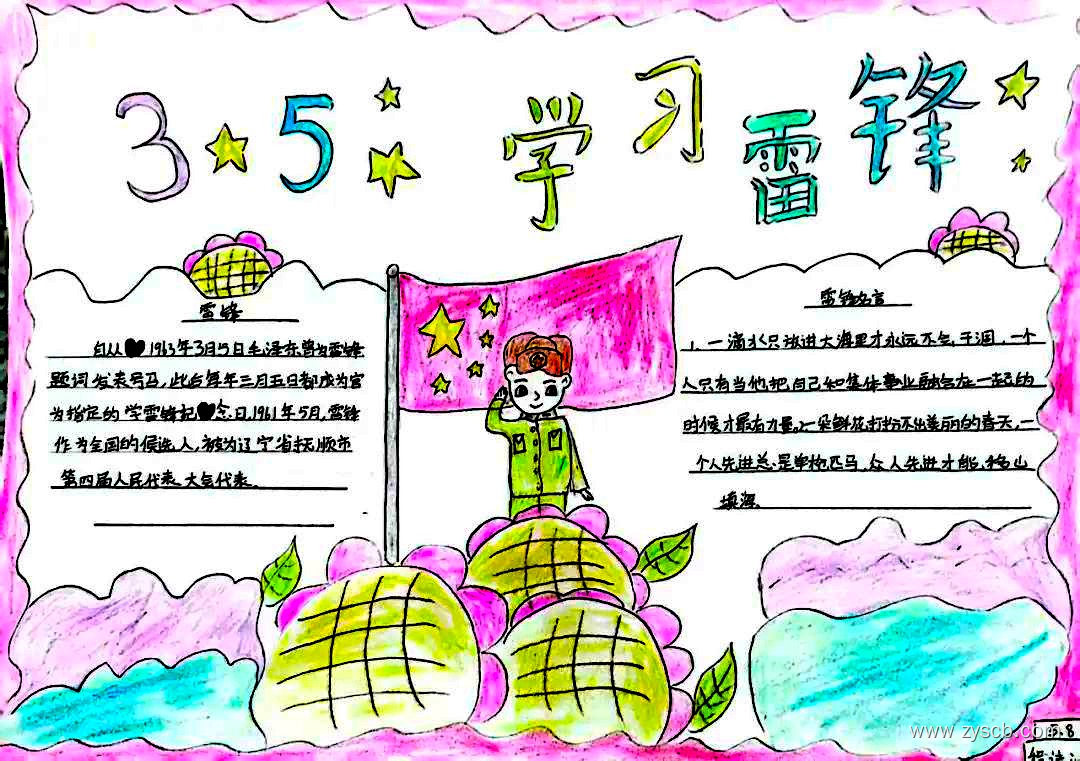 3 5 学习雷锋
雷锋
自从1963年3月5日毛泽东曾为雷锋
题词发表号召,此后每年三月五日都成为官
为指定的学雷锋纪念日,1961年5月,雷锋
作为全国的候选人,被为辽宁省抚顺市
第四届人民代表大会代表。
雷锋名言
1.一滴水只放进大海里才永远不会干涸,一个
人只有当他把自己和集体事业融合在一起的
时候才最有力量。一朵鲜花打扮不出美丽的春天,一
个人先进总是单枪匹马,众人先进才能移山
填海.
www.zyscb.com